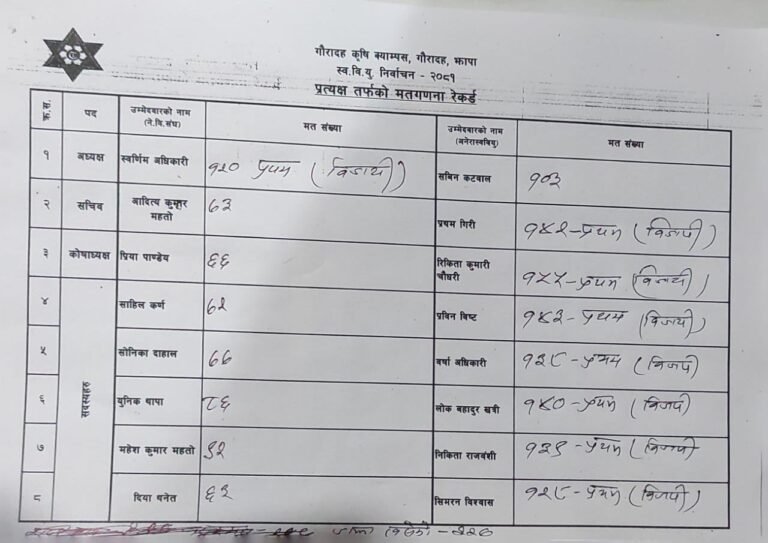 गौरादह कृषि क्याम्पस, गौरादह, झापा
स्व.वि.यु. निर्वाचन - २०८१
प्रत्यक्ष तर्फको मतगणना रेकर्ड
क्र.स. पद उम्मेदवारको नाम (ने.वि.संघ) मत संख्या उम्मेदवारको नाम (अनेरास्ववियु) मत संख्या
१ अध्यक्ष स्वर्णिम अधिकारी १२० प्रथम (विजयी) सबिन कटवाल १०३
२ सचिव आदित्य कुमार महतो ६३ प्रथम गिरी १४२-प्रथम (विजयी)
३ कोषाध्यक्ष प्रिया पाण्डेय ६६ रिकिता कुमारी चौधरी १५५-प्रथम (विजयी)
सदस्यहरु
४ साहिल कर्ण ६२ प्रविन विष्ट १४२-प्रथम (विजयी)
५ सोनिका दाहाल ७७ वर्षा अधिकारी १२८-प्रथम (विजयी)
६ युनिक थापा ८६ लोक बहादुर खत्री १४०-प्रथम (विजयी)
७ महेश कुमार महतो ९२ निकिता राजवंशी १२९-प्रथम (विजयी)
८ दिया बनेत ६२ सिमरन विश्वास १२८-प्रथम (विजयी)